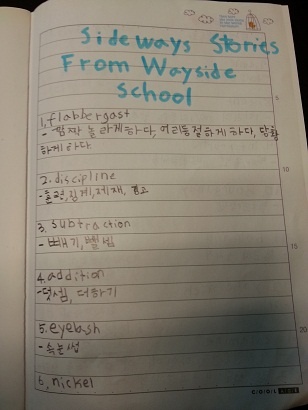 Sideways Stories
From Wayside
School
1. flabbergast
- 깜짝 놀라게하다, 어리둥절하게 하다, 당황
하게 하다.
2. discipline
- 훈련, 징계, 제재,
3. subtraction
- 빼기, 뺄셈
4. addition
- 덧셈, 더하기
5. eyelash
- 속눈썹
6. nickel
5
10
15
20
COOL